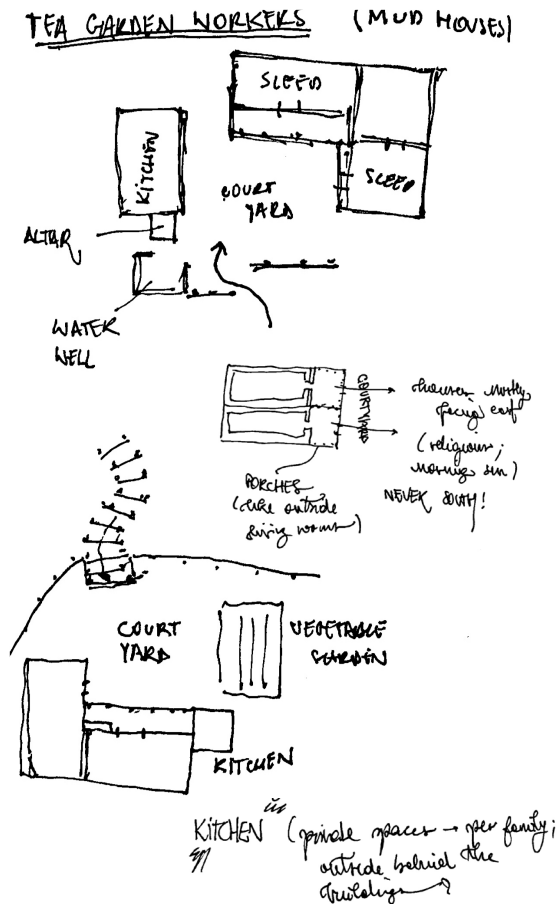 TEA GARDEN WORKERS (MUD HOUSES)
SLEEP
KITCHEN
SLEEP
COURT
YARD
ALTAR
WATER
WELL
COURTYARD
houses mostly
facing east
(religious;
morning sun)
NEVER SOUTH!
PORCHES
(like outside
living rooms)
COURT
YARD
VEGETABLE
GARDEN
KITCHEN
KITCHEN (private spaces → per family;
outside behind the
buildings